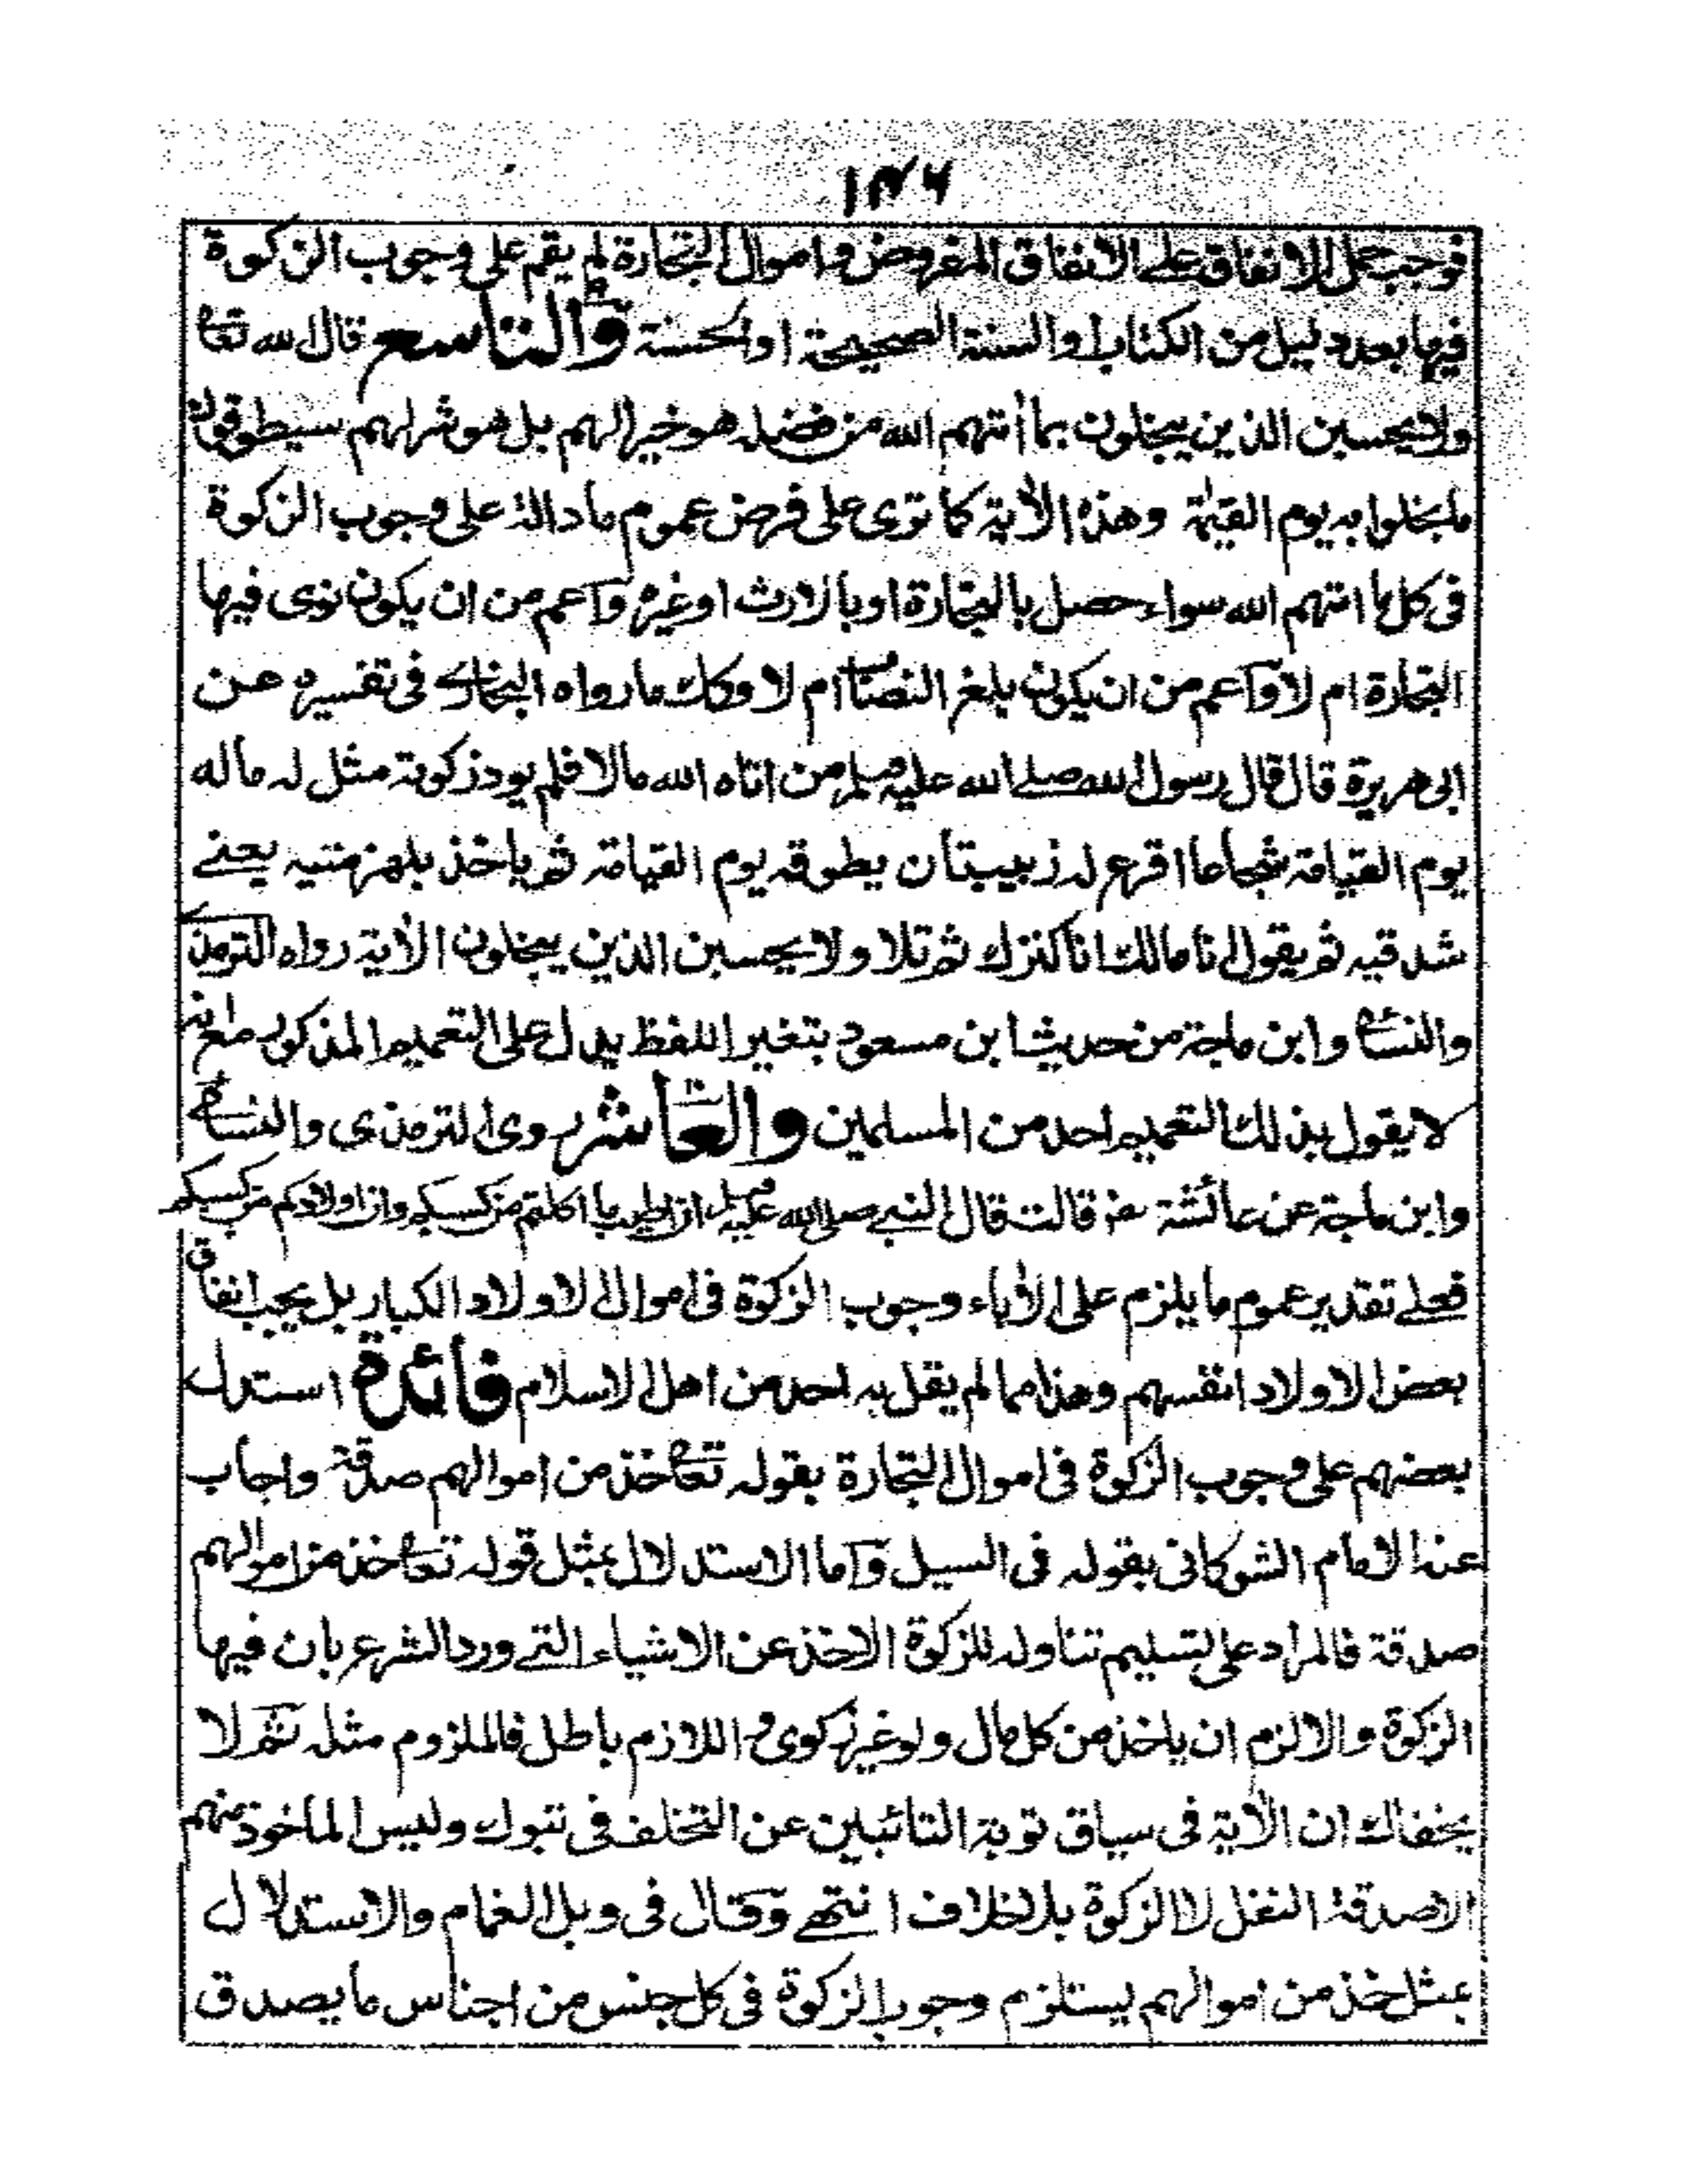 ۱۴۶
فوجب حمل الانفاق على الانفاق المفروض واموال التجارة لم يقم على وجوب الزكوة
فيها بعد دليل من الكتاب او السنة الصحيحة او الحسنة والتاسع قال الله تعا
ولا يحسبن الذين يبخلون بما أتتهم الله من فضله هو خيرا لهم بل هو شر لهم سيطوقون
ما بخلوا به يوم القيمة وهذه الأية كما ترى على فرض عموم ما دالة على وجوب الزكوة
فى كل ما اتتهم الله سواء حصل بالتجارة او بالارث او غيره وآعم من ان يكون نوى فيها
التجارة ام لا وآعم من ان يكون بلغ النصاب ام لا وكك ما رواه البخارى فى تفسيره عن
ابى هريرة قال قال رسول الله صلى الله عليه وسلم من اتاه الله مالا فلم يود زكوته مثل له ماله
يوم القيامة شجاعا اقرع له زبيبتان يطوقه يوم القيامة ثم ياخذ بلهزمتيه يعنے
شدقيه ثم يقول انا مالك انا كنزك ثم تلا ولا يحسبن الذين يبخلون الأية رواه الترمذى
والنسائى وابن ماجة من حديث ابن مسعود بتغير اللفظ يدل على التعميم المذكور مع انه
لا يقول بذلك التعميم احد من المسلمين والعاشر روى الترمذى والنسائى
وابن ماجة عن عائشة رضه قالت قال النبى صلى الله عليه وسلم ان اطيب ما اكلتم من كسبكم وان اولادكم من كسبكم
فعلے تقدير عموم ما يلزم على الأباء وجوب الزكوة فى اموال الاولاد الكبار بل يجب انفاق
بعض الاولاد انفسهم وهذا مما لم يقل به احد من اهل الاسلام فائدة استدل
بعضهم على وجوب الزكوة فى اموال التجارة بقوله تعا خذ من اموالهم صدقة واجاب
عنه الامام الشوكانى بقوله فى السيل وآما الاستدلال بمثل قوله تعا خذ من اموالهم
صدقة فالمراد على تسليم تناوله للزكوة الاخذ عن الاشياء التے ورد الشرع بان فيها
الزكوة والا لزم ان ياخذ من كل مال ولو غير زكوى و اللازم باطل فالملزوم مثله ثم لا
يخفاك ان الأية فى سياق توبة التائبين عن التخلف فى تبوك وليس الماخوذ منهم
الا صدقة النفل لا الزكوة بلا خلاف انتهے وقال فى وبل الغمام والاستدلال
بمثل خذ من اموالهم يستلزم وجوب الزكوة فى كل جنس من اجناس ما يصدق